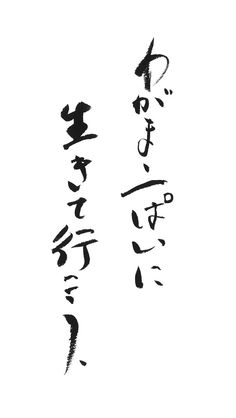 わがまゝ一ぱいに
生きて行こう、